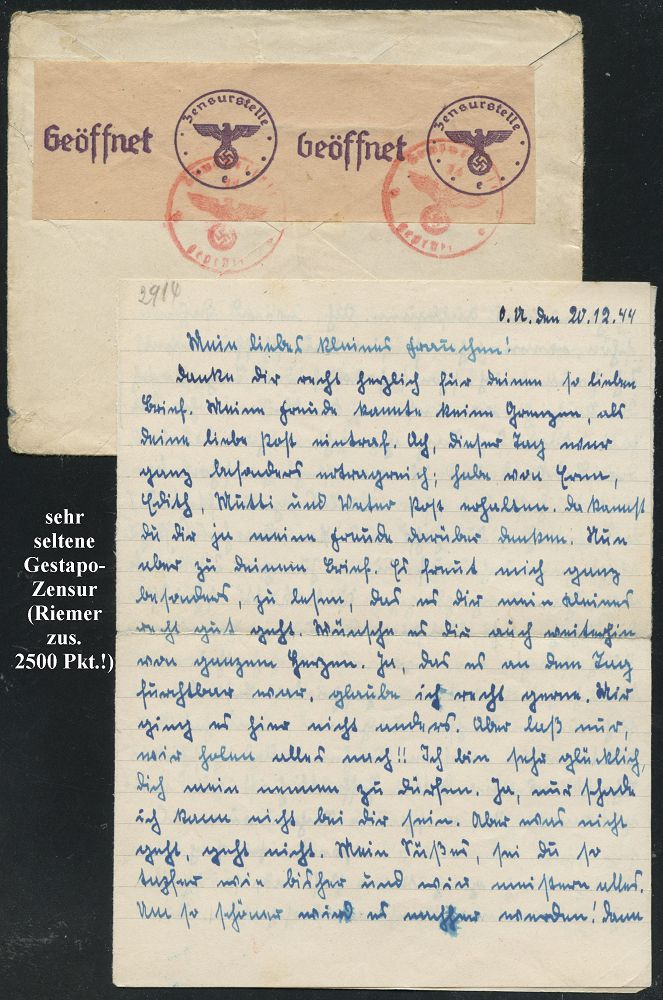 Geöffnet
Zensurstelle
e
Geöffnet
Zensurstelle
e
geprüft
geprüft
2914
O.U. den 20.12.44
Mein liebes kleines Frauchen!
Danke dir recht herzlich für deinen so lieben
Brief. Meine Freude kannte keine Grenzen, als
deine liebe Post eintraf. Ach, dieser Tag war
ganz besonders ertragreich; habe von Erna,
Edith, Mutti und Vater Post erhalten. Da kannst
du dir ja meine Freude darüber denken. Nun
aber zu deinem Brief. Es freut mich ganz
besonders, zu lesen, das es dir mein kleines
recht gut geht. Wünsche es dir auch weiterhin
von ganzem Herzen. Ja, das es an dem Tag
furchtbar war, glaube ich recht gerne. Mir
ging es hier nicht anders. Aber laß nur,
wir holen alles nach!! Ich bin sehr glücklich,
dich mein nennen zu dürfen. Ja, nur schade
ich kann nicht bei dir sein. Aber was nicht
geht, geht nicht. Mein Süßes, sei du so
tapfer wie bisher und wir meistern alles.
Um so schöner wird es nachher werden! Dann
sehr
seltene
Gestapo-
Zensur
(Riemer
zus.
2500 Pkt.!)